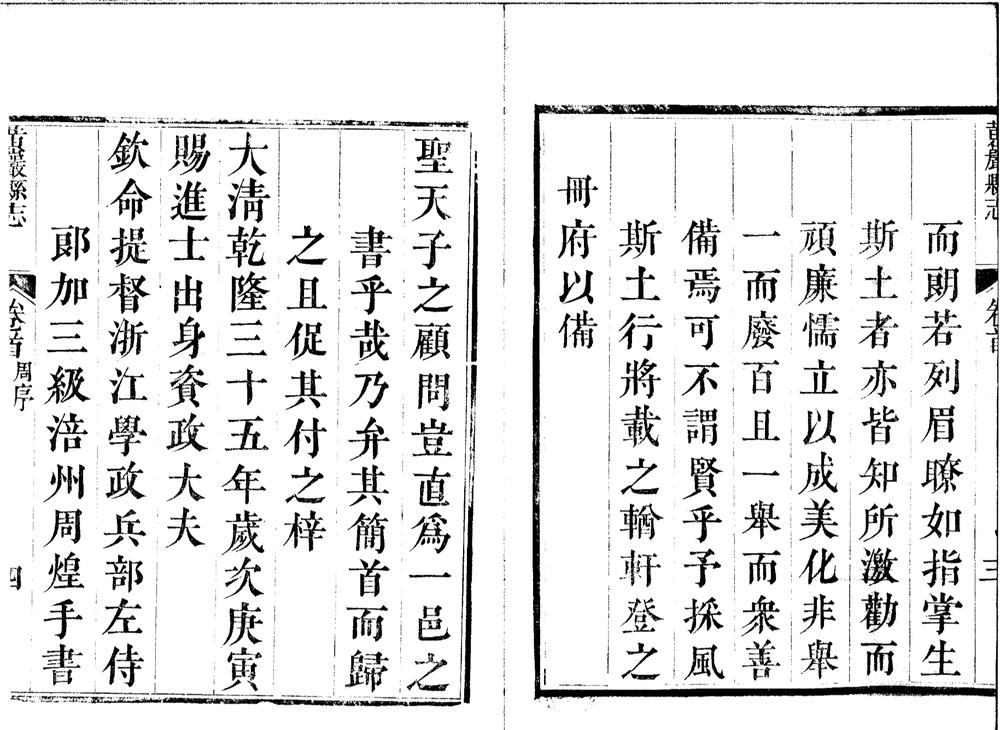 黃巖縣志
卷首
三
而朗若列眉瞭如指掌生
斯土者亦皆知所激勸而
頑廉懦立以成美化非舉
一而廢百且一舉而衆善
備焉可不謂賢乎予採風
斯土行將載之輶軒登之
冊府以備
聖天子之顧問豈直爲一邑之
書乎哉乃弁其簡首而歸
之且促其付之梓
大淸乾隆三十五年歲次庚寅
賜進士出身資政大夫
欽命提督浙江學政兵部左侍
郎加三級涪州周煌手書
黃巖縣志
卷首周序
四